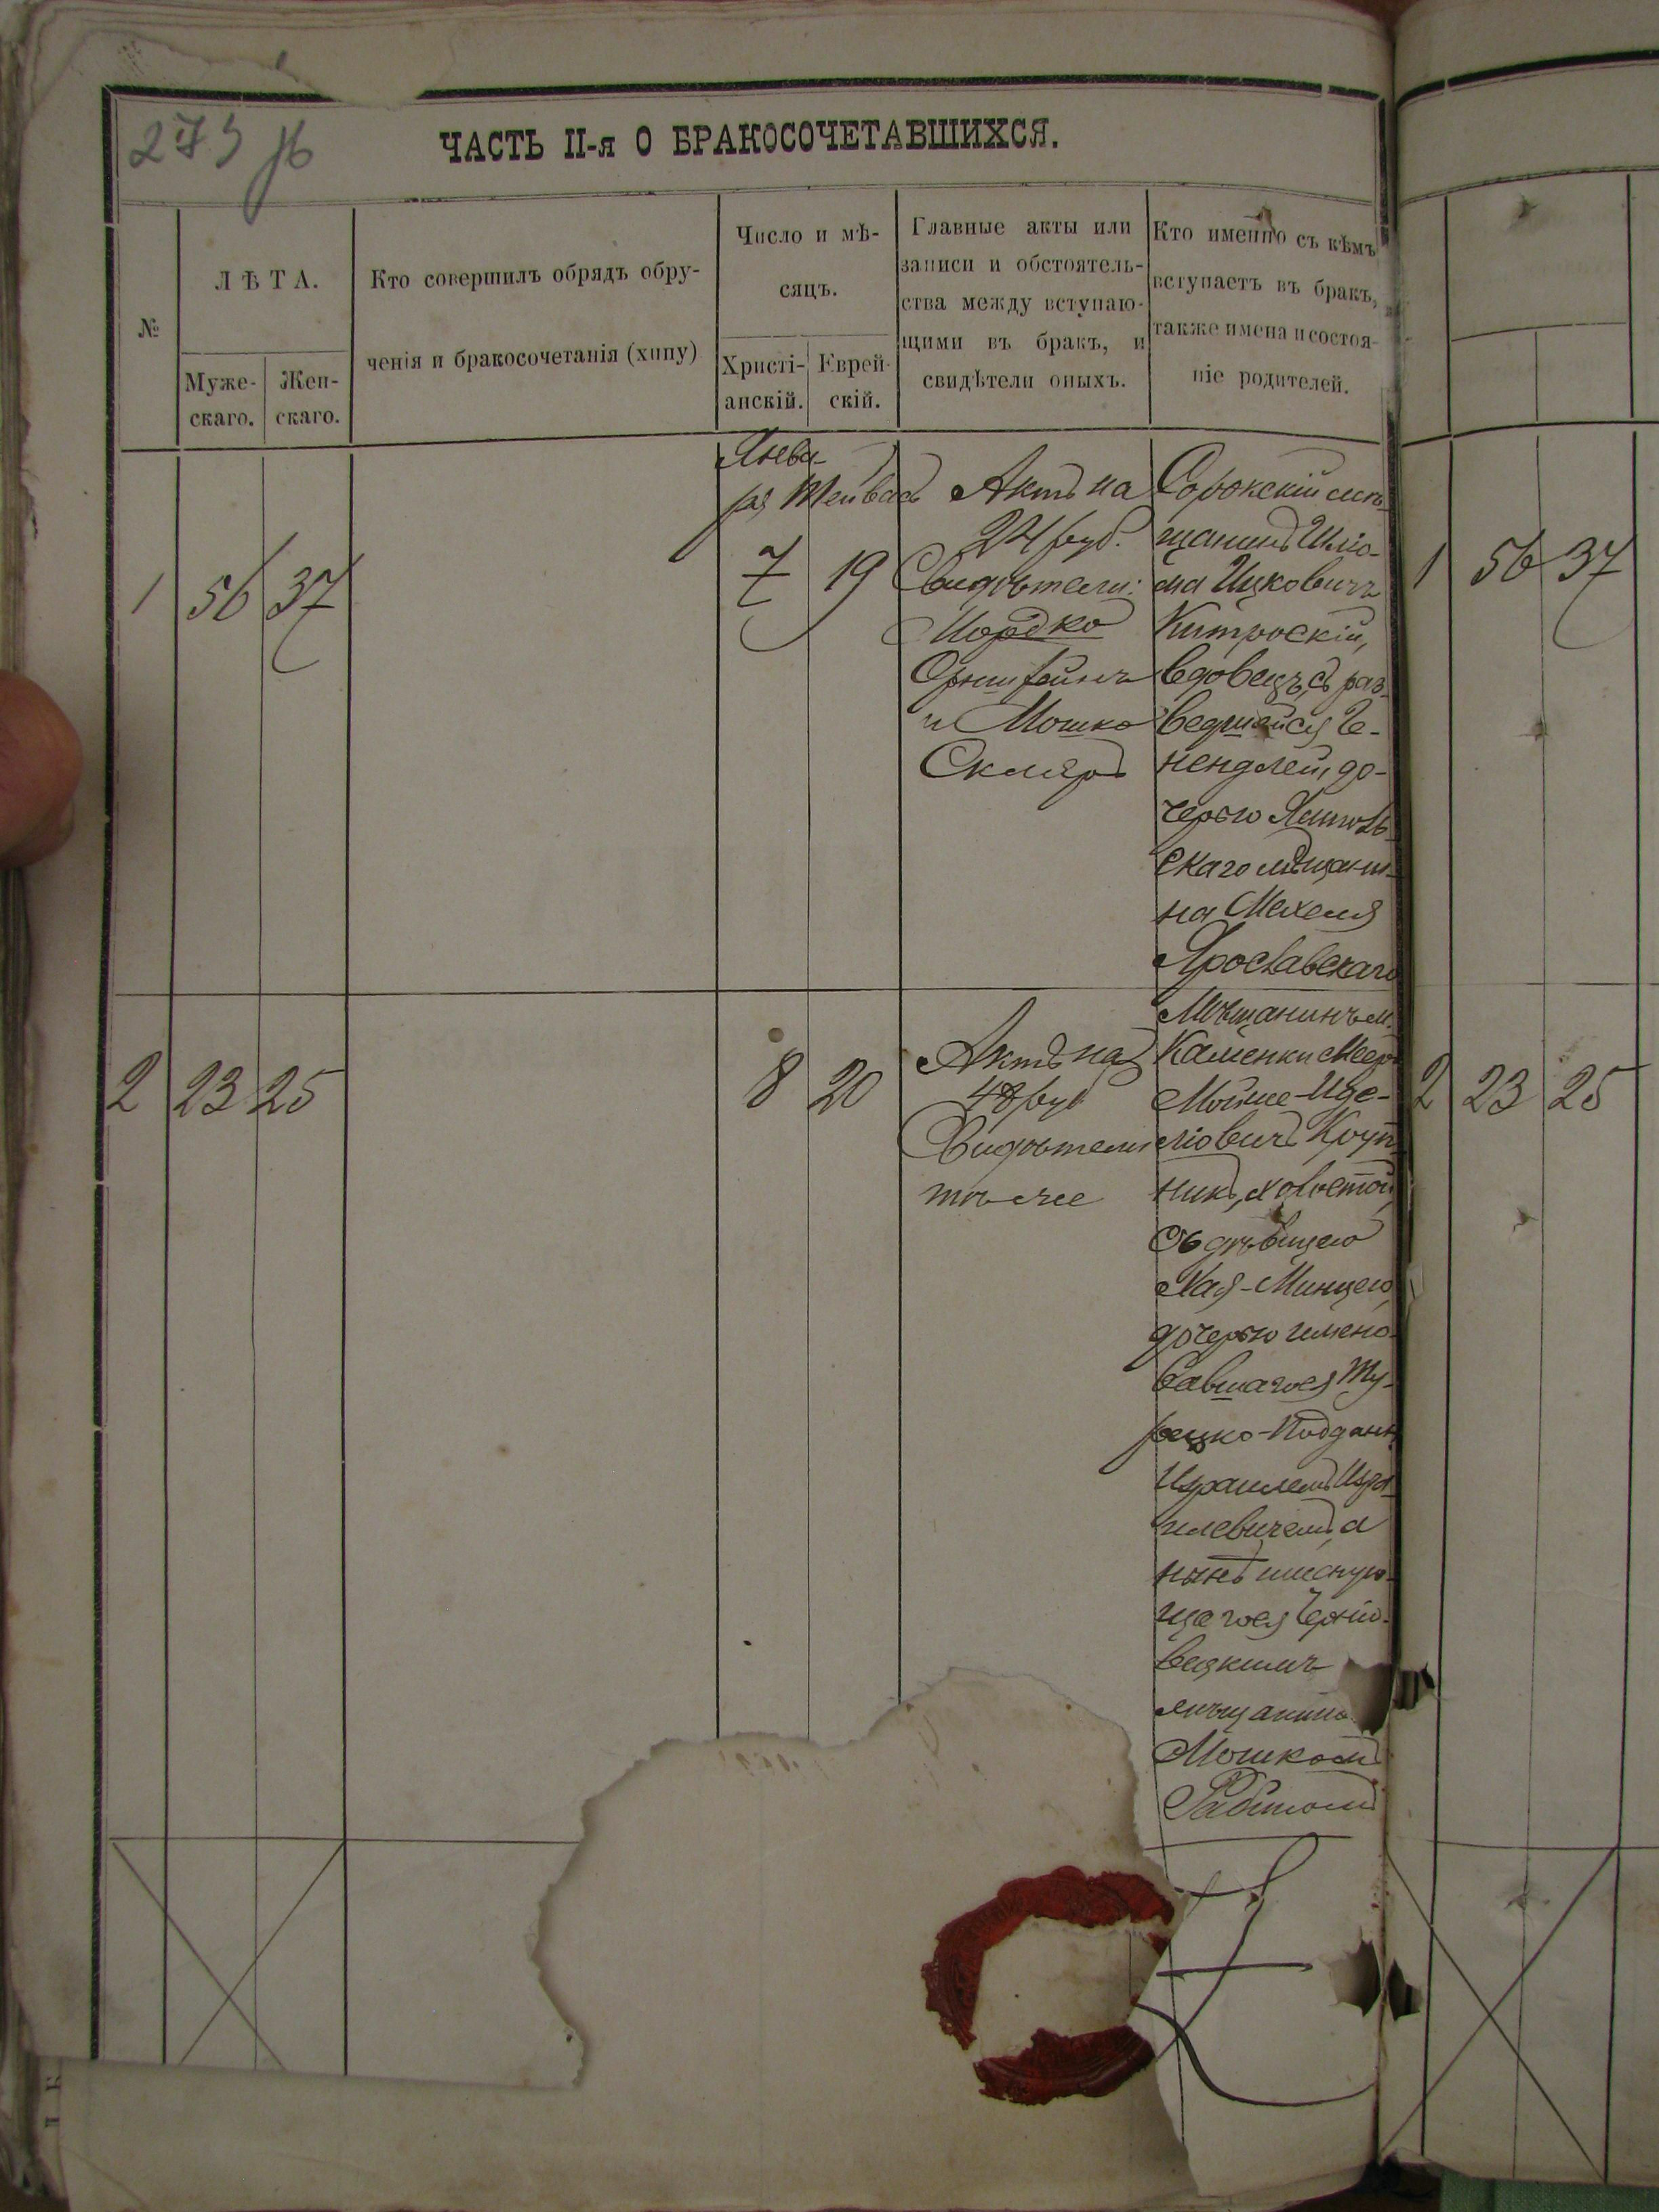 275 
ЧАСТЬ II-я О БРАКОСОЧЕТАВШИХСЯ.
№
ЛѢТА.
Муже-
скаго.
Жен-
скаго.
Кто совершилъ обрядъ обру-
ченія и бракосочетанія (хипу)
Число и мѣ-
сяцъ.
Христі-
анскій.
Еврей-
скій.
Главные акты или
записи и обстоятель-
ства между вступаю-
щими въ бракъ, и
свидѣтели оныхъ.
Кто именно съ кѣмъ
вступаетъ въ бракъ,
также имена и состоя-
ніе родителей.
1
56
37
Янва-
ря
7
Тейвасъ
19
Актъ на
24 руб.
Свидѣтели:
Мордко
и Мошко
Скляръ
Сорокскій мѣ-
щанинъ Шлio-
ма Ицковичъ
Китроскій,
вдовецъ, съ раз-
ведшейся Ге-
нендлей, до-
черью
скаго мѣщани-
на Мехеля
Ярославскаго
2
23
25
8
20
Актъ на
48 руб
Свидѣтели
тѣ же
Мѣщанинъ м.
Каменки Меер
Мойше-Иде-
ліовичъ Круп
никъ, холостой
съ дѣвицею
Хая-Минцею,
дочерью имено-
вавшагося Ту-
рецко-Поддан
Израилемъ Изра-
илевичемъ, а
нынѣ именую-
щагося Черно-
вецкимъ
мѣщанино
Мошкомъ
1
56
37
2
23
25